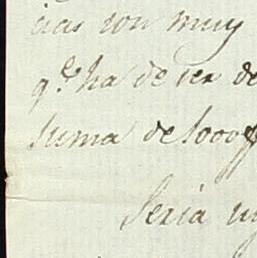 cias son muy
q.e ha de ser de
suma de 5000
Seria u